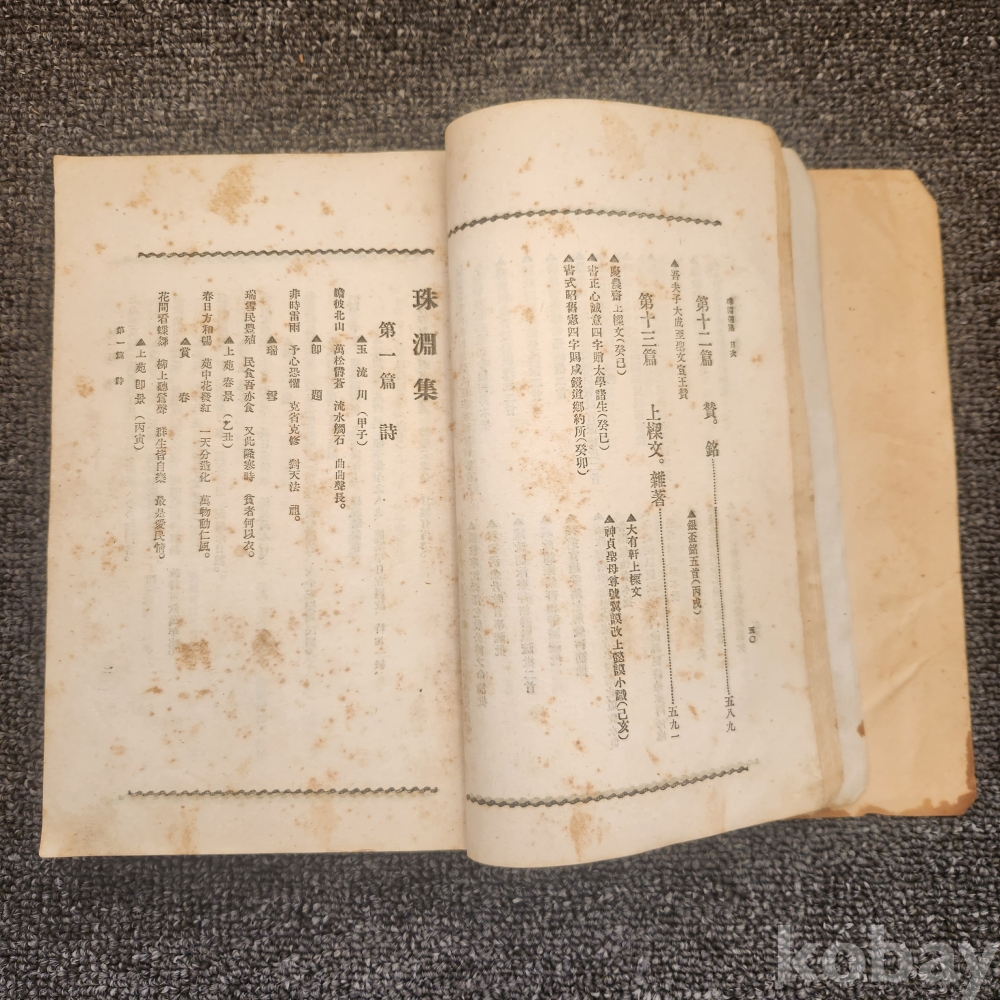 第十二篇 贊。銘……五八九
▲吾夫子大成至聖文宣王贊
▲銀盃銘五首(丙戌)
第十三篇 上樑文。雜著……五九一
▲慶農齋上樑文(癸巳)
▲大有軒上樑文
▲書正心誠意四字贈太學諸生(癸巳)
▲神貞聖母尊號冀謨改上懿謨小識(己亥)
▲書式昭舊憲四字賜咸鏡道鄕約所(癸卯)
五〇
珠淵集
第一篇 詩
▲玉流川(甲子)
瞻彼北山 萬松鬱蒼 流水觸石 曲曲聲長。
▲卽題
非時雷雨 予心恐懼 克省克修 對天法祖。
▲瑞雪
瑞雪民豐殖 民食吾亦食 又此隆寒時 貧者何以衣。
▲上苑春景(乙丑)
春日方和暢 苑中花發紅 一天分造化 萬物動仁風。
▲賞春
花間看蝶舞 柳上聽鶯聲 群生皆自樂 最是愛民情。
▲上苑卽景(丙寅)
第一篇 詩
一
kobay